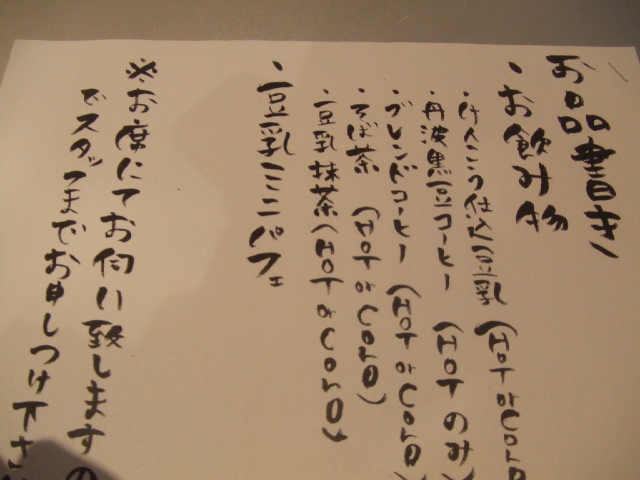 お品書き
・お飲み物
・けんこう仕込豆乳 (HOT or COLD
・丹波黒豆コーヒー (HOTのみ)
・ブレンドコーヒー (HOT or COLD)
・そば茶 (HOT or COLD)
・豆乳抹茶 (HOT or COLD)
・豆乳ミニパフェ
※お席にてお伺い致しますの
でスタッフまでお申しつけ下さい